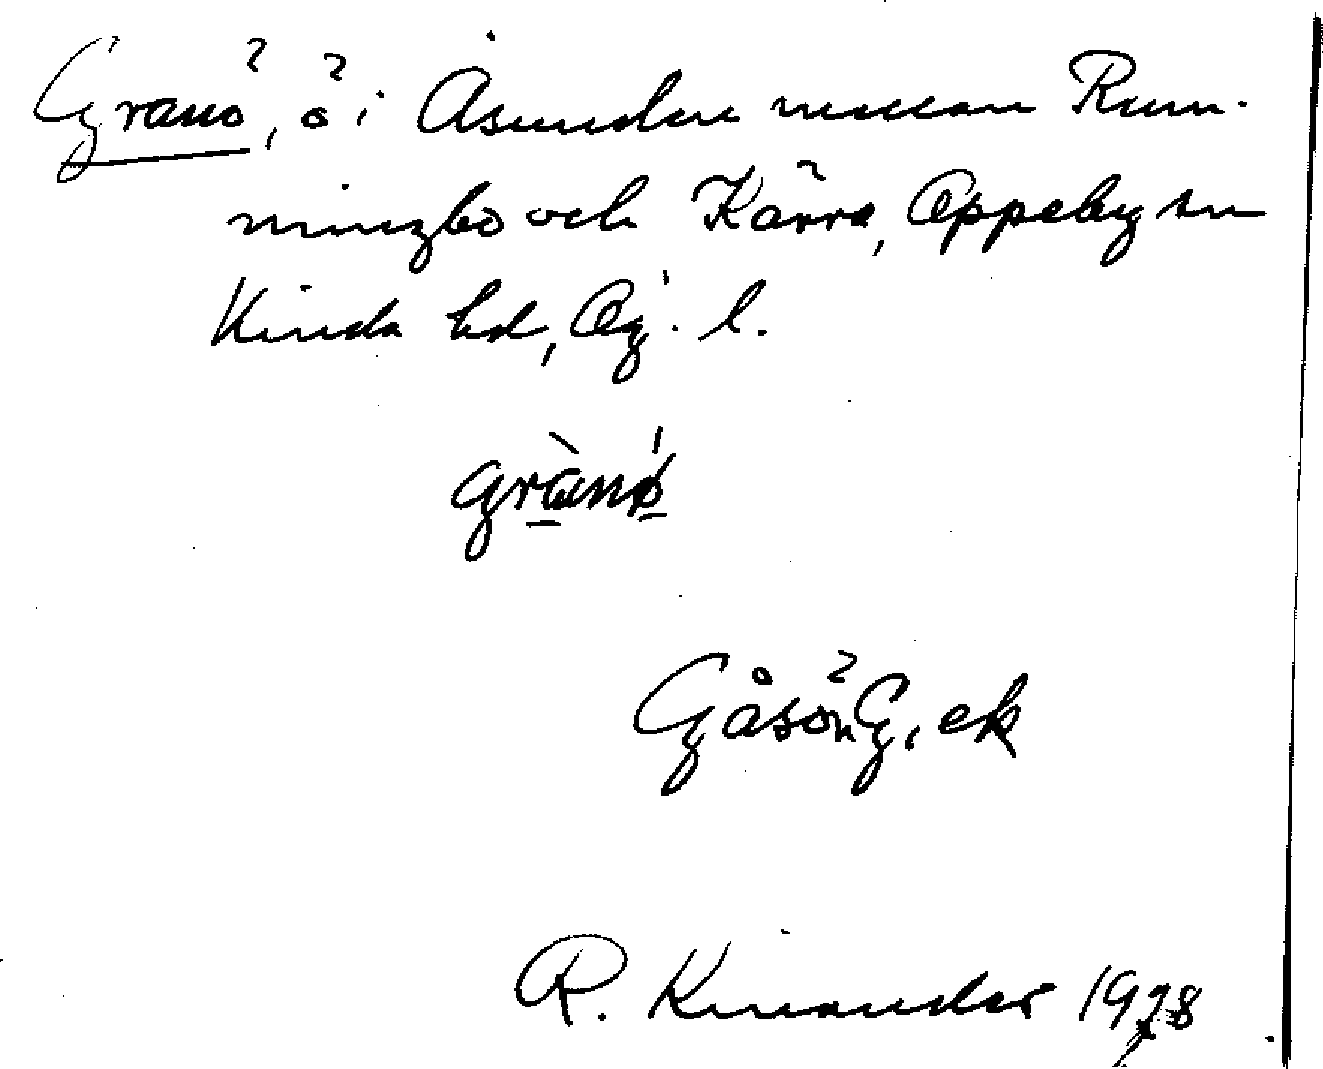 Granö, ö i Åsunden mellan Rum-
mingbo och Kärra, Oppeby sn
Kinda hd, Ög. l.
grànǿ
Gåsön G, ek
R. Kinander 1928